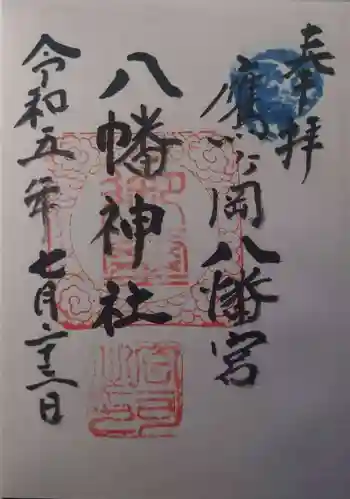 奉拝
鷹岡八幡宮
八幡神社
令和五年七月二十三日